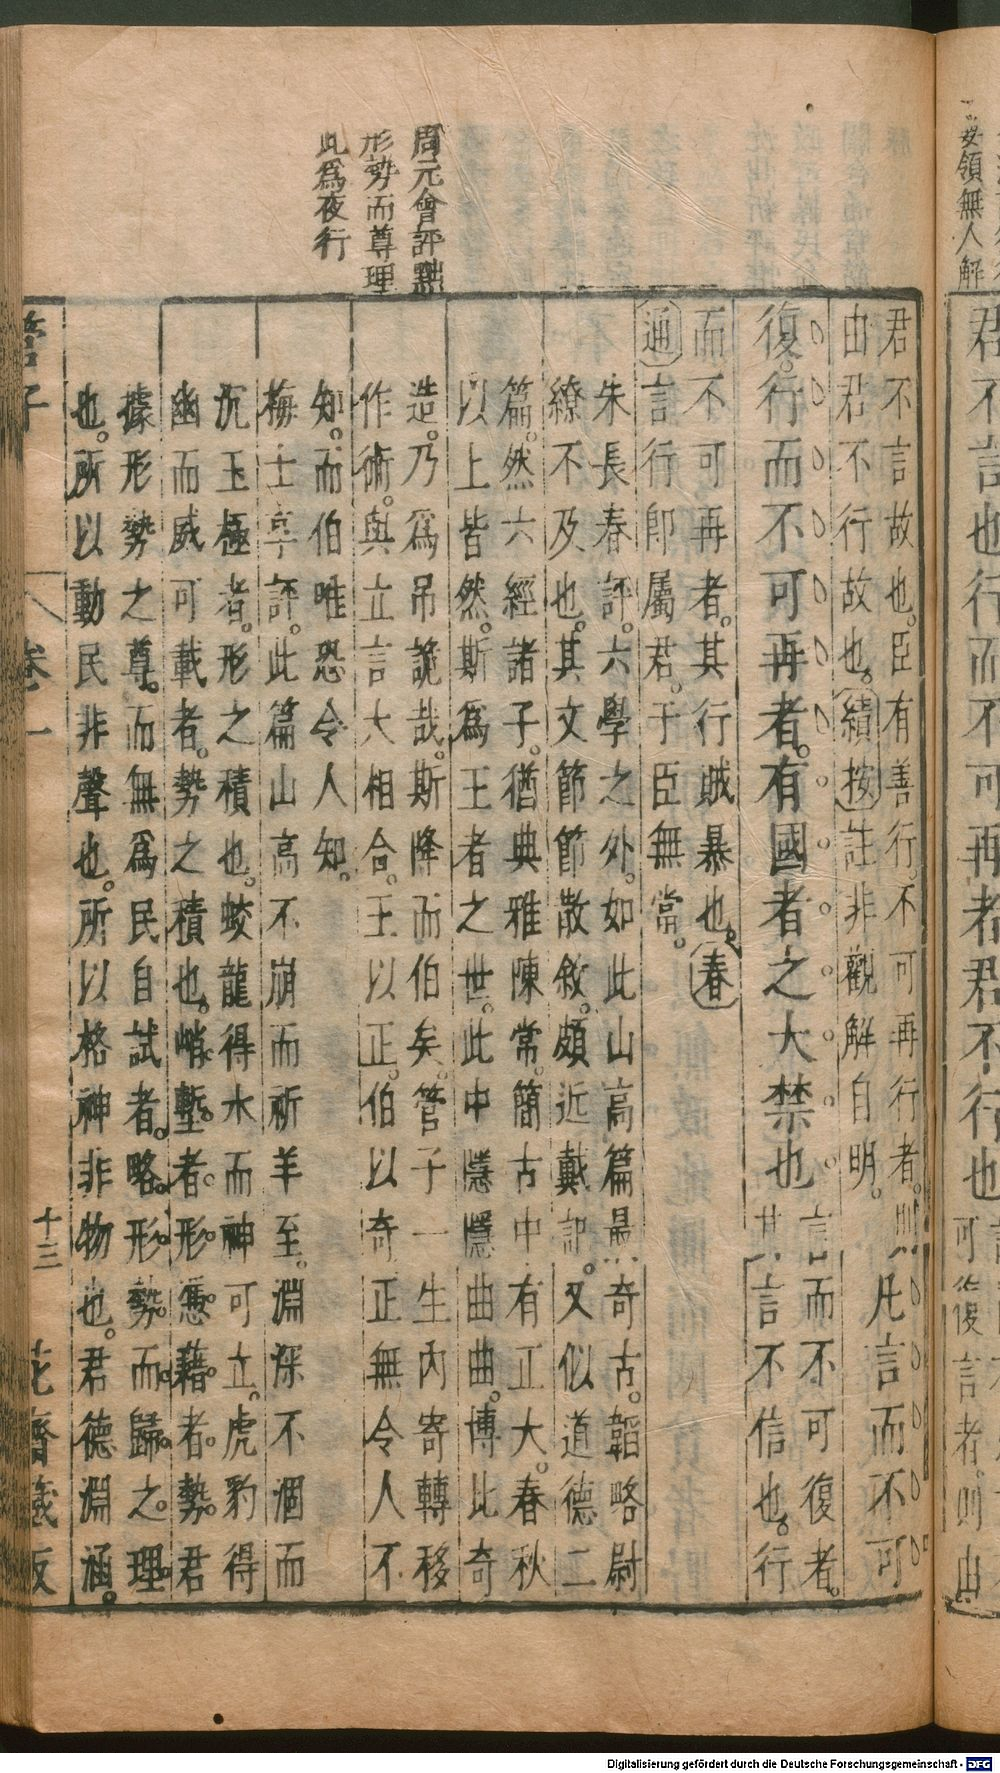 周元會評點
形勢而尊理
此爲夜行
君不言故也。臣有善行。不可再行者。則
由君不行故也。績按註非觀解自明。
凡言而不可
復。行而不可再者。有國者之大禁也
言而不可復者。
其言不信也。行
而不可再者。其行賊暴也春
通言行卽屬君。于臣無當。
朱長春評。六學之外。如此山高篇最奇古。韜略尉
繚不及也。其文節節散敘。頗近戴記。又似道德二
篇。然六經諸子。猶典雅陳常。簡古中有正大。春秋
以上皆然。斯爲王者之世。此中隱隱曲曲。博此奇
造。乃爲弔詭哉。斯降而伯矣。管子一生內寄轉移
作術。與立言大相合。王以正。伯以奇正無令人不
知。而伯唯恐令人知。
梅士享評。此篇山高不崩而祈羊至。淵深不涸而
沉玉極者。形之積也。蛟龍得水而神可立。虎豹得
幽而威可載者。勢之積也。峭塹者。形。憑藉者。勢。君
據形勢之尊。而無爲民自試者。略形勢。而歸之。理
也。所以動民非聲也。所以格神非物也。君德淵涵。
管子
卷一
十三
花齋藏板
要領無人解
君不言也行而不可再者君不行也
可復言者。則由
Digitalisierung gefördert durch die Deutsche Forschungsgemeinschaft - DFG